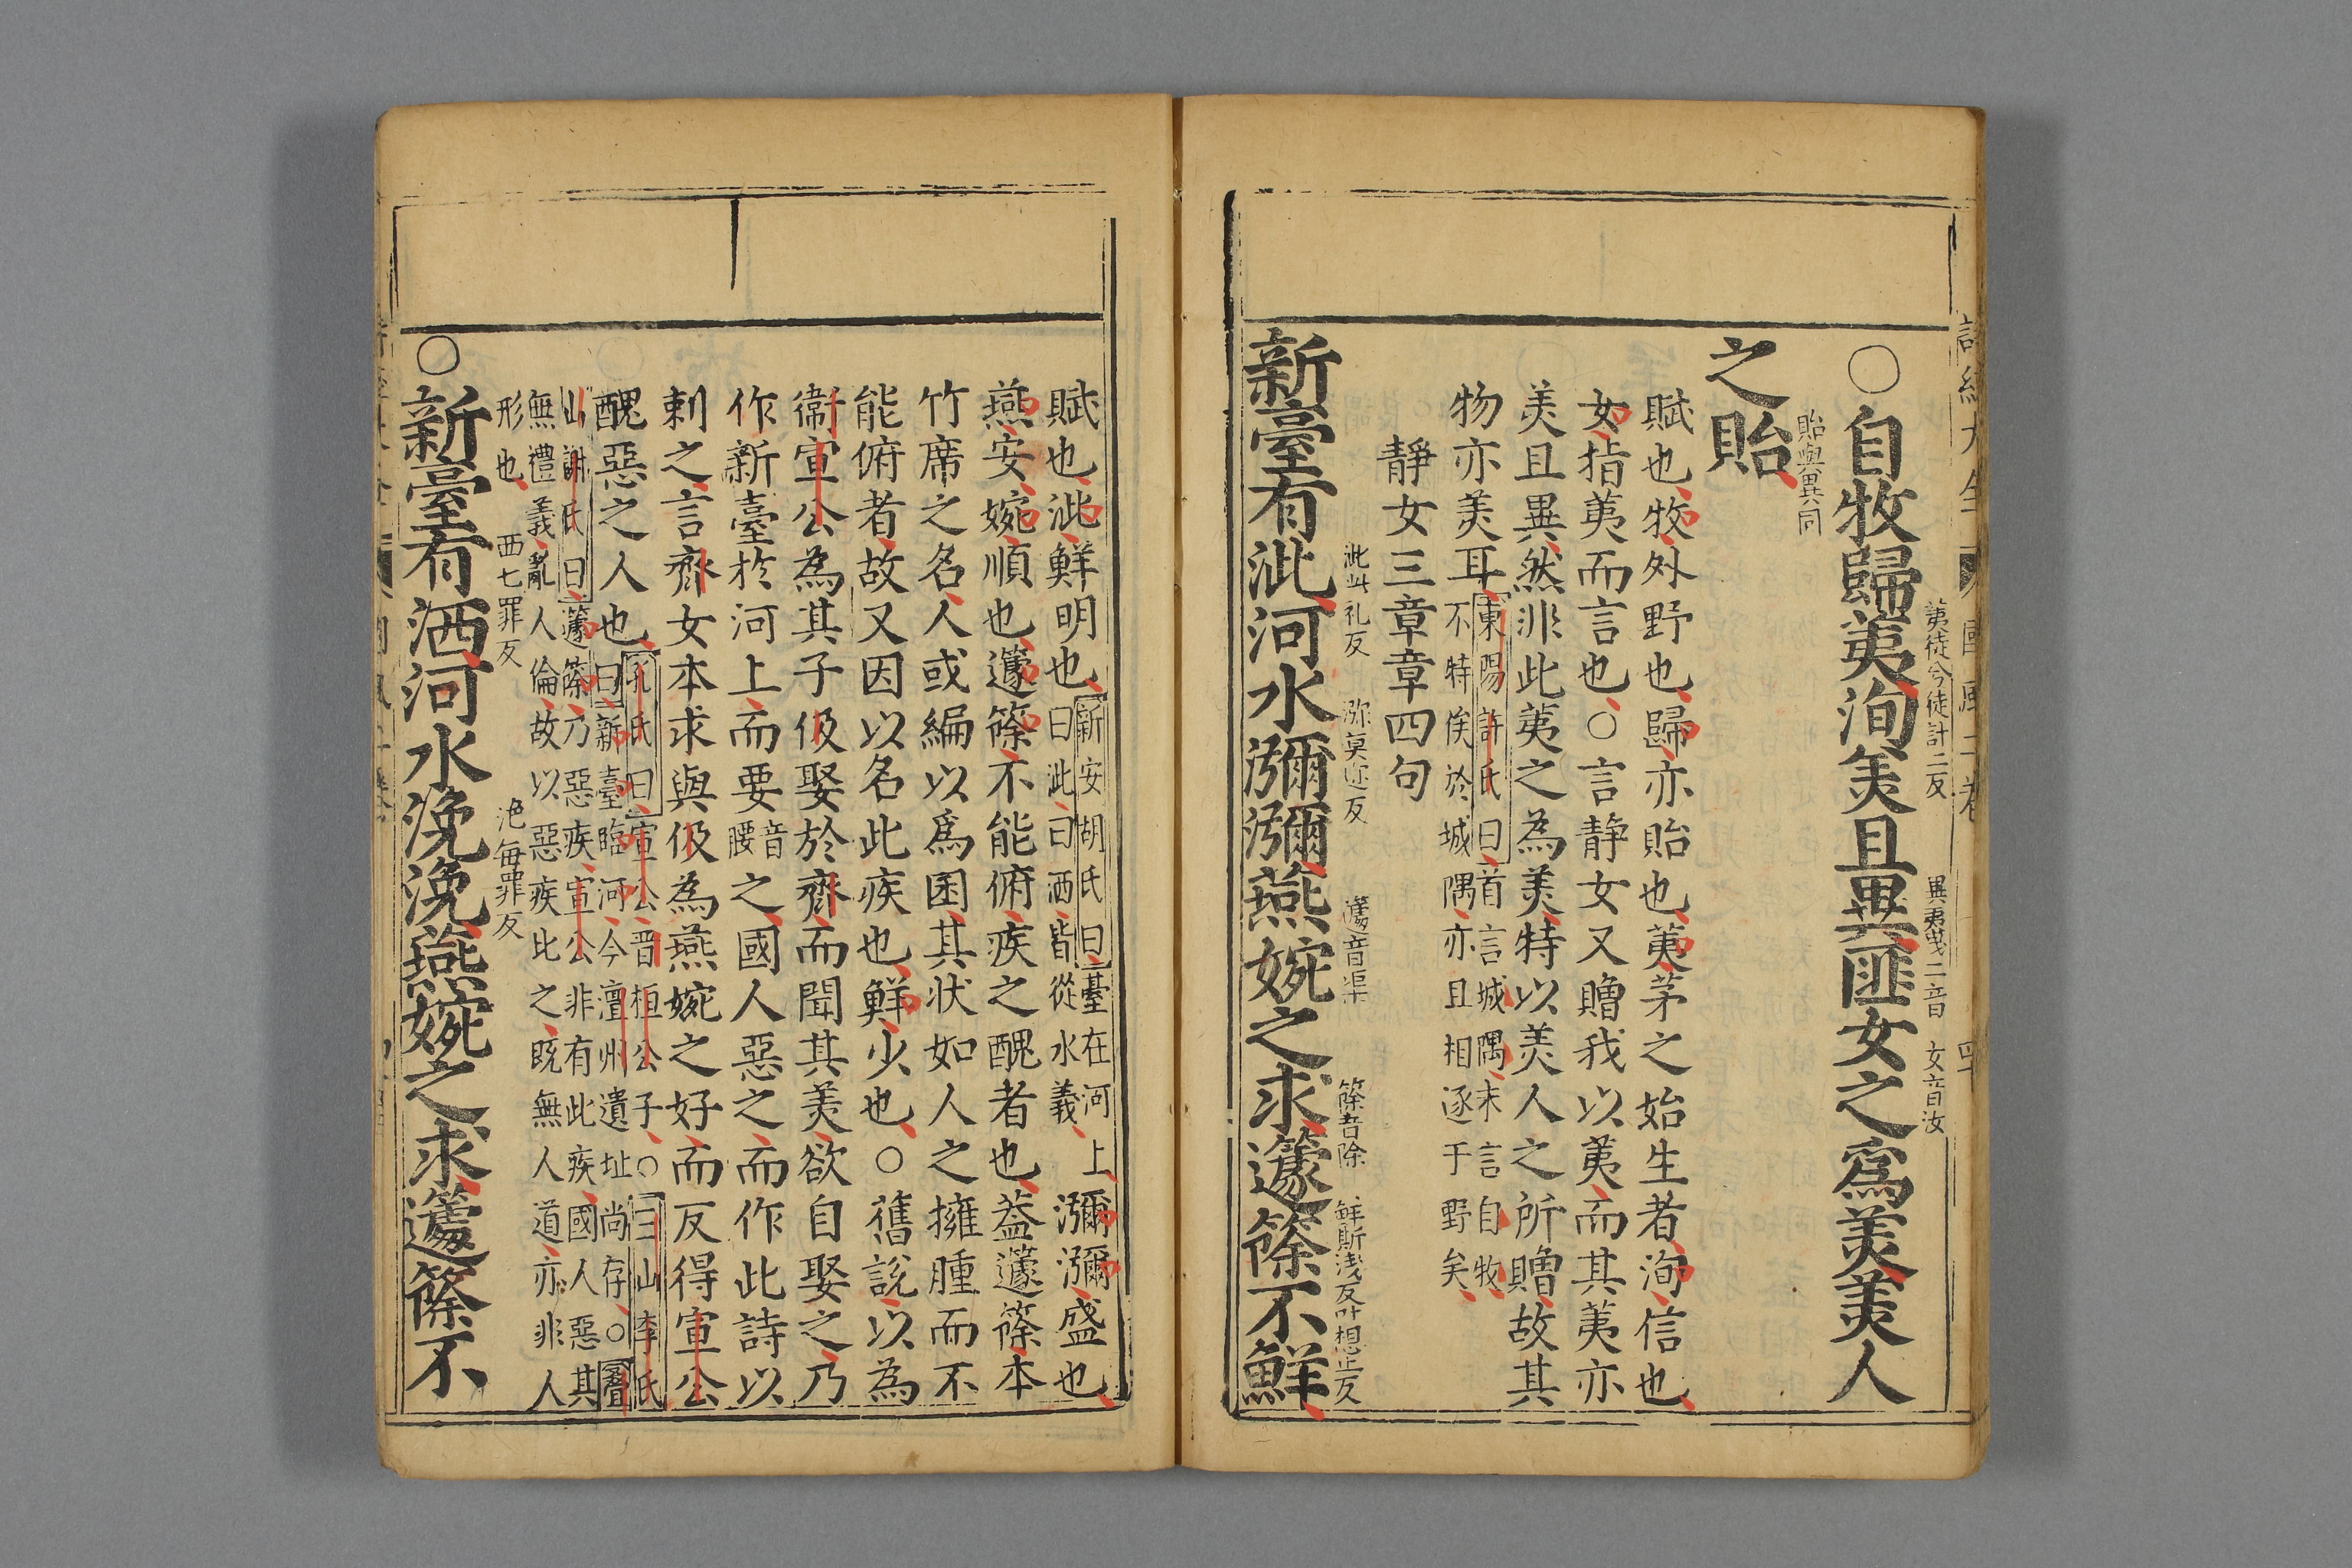 ○自牧歸荑洵美且異匪女之爲美美人
荑徒兮徒計二反
異夷曳二音
女音汝
之貽
貽與異同
賦也牧外野也歸亦貽也荑茅之始生者洵信也
女指荑而言也○言静女又贈我以荑而其荑亦
美且異然非此荑之為美特以美人之所贈故其
物亦美耳
東陽許氏曰首言城隅末言自牧
不特俟於城隅亦且相逐于野矣
靜女三章章四句
泚此礼反
瀰莫迩反
籧音渠
篨音除
鲜斯浅反叶想止反
新臺有泚河水瀰瀰燕婉之求籧篨不鮮
賦也泚鮮明也
新安胡氏曰臺在河上
曰泚曰洒皆從水義
瀰瀰盛也
燕安婉順也籧篨不能俯疾之醜者也葢籧篨本
竹席之名人或編以爲囷其状如人之擁腫而不
能俯者故又因以名此疾也鮮少也○舊説以為
衞宣公為其子伋娶於齊而聞其美欲自娶之乃
作新臺於河上而要
音腰
之國人惡之而作此詩以
刺之言齊女本求與伋為燕婉之好而反得宣公
醜惡之人也
孔氏曰宣公晋桓公子○三山李氏
曰新臺臨河今澶州遺址尚存○疊
山謝氏曰籧篨乃惡疾宣公非有此疾國人惡其
無禮義亂人倫故以惡疾比之既無人道亦非人
形也
西七罪反
浼每罪反
○新臺有洒河水浼浼燕婉之求籧篨不